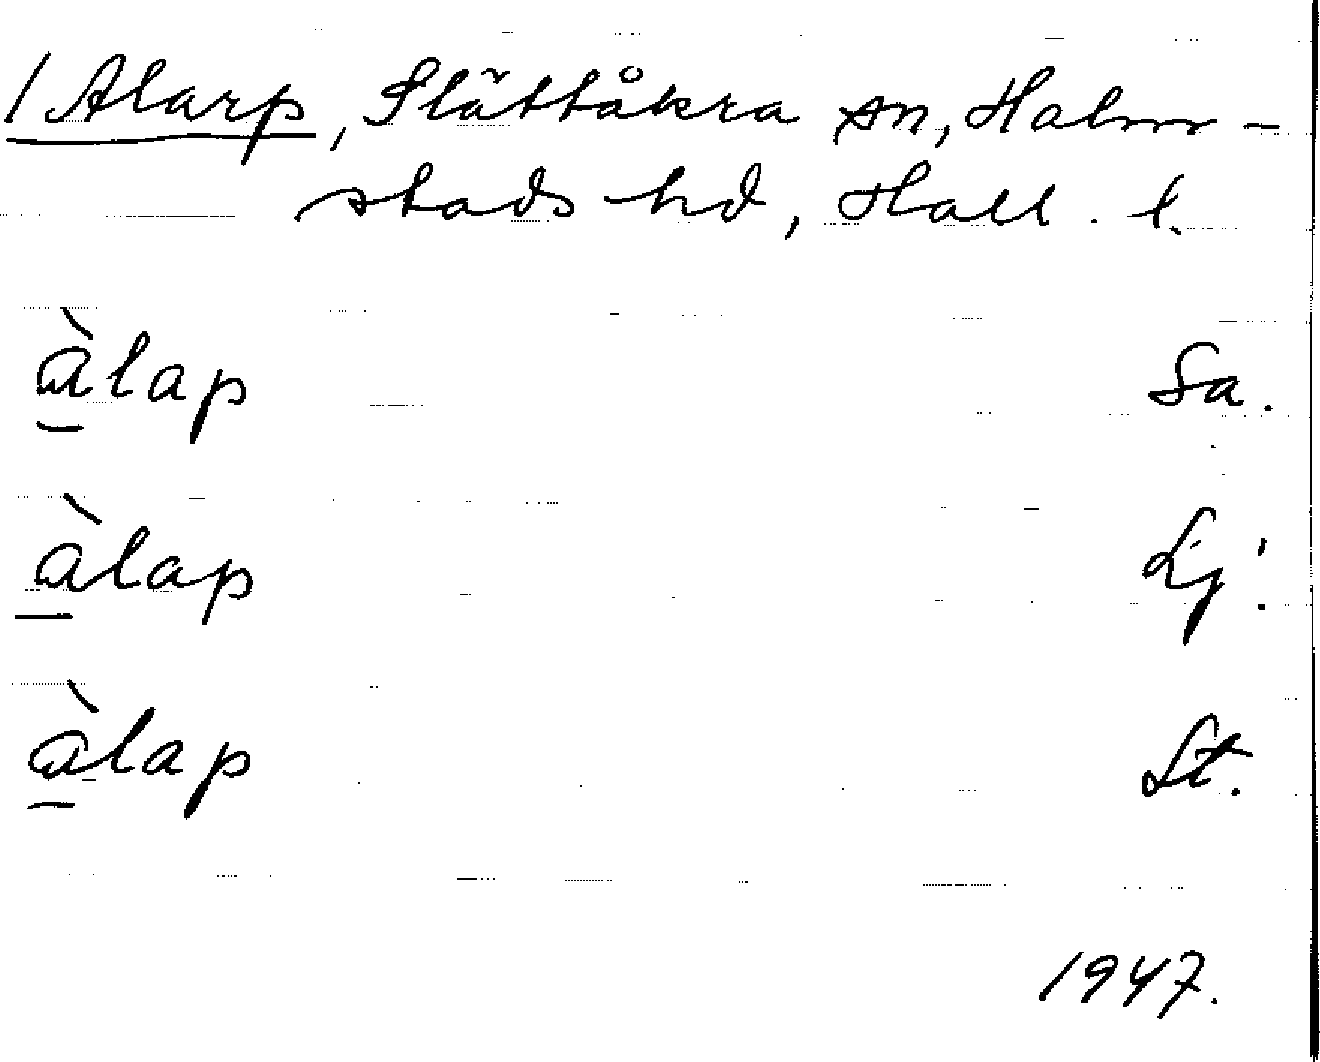 /Alarp, Slättåkra sn, Halm-
stads hd, Hall. l.
àlap Sa.
àlap Lj.
àlap St.
1947.